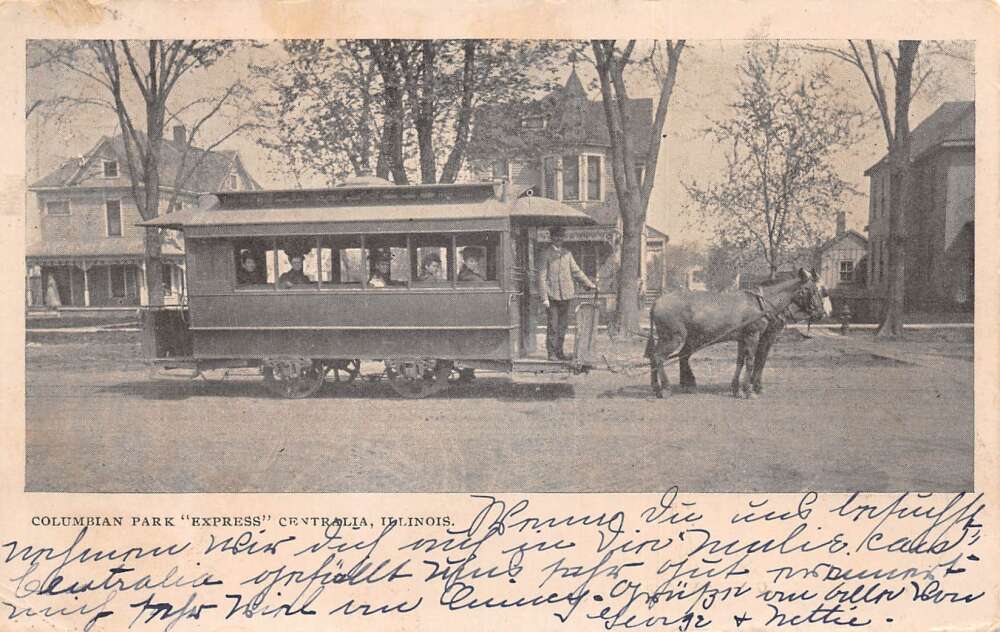 COLUMBIAN PARK "EXPRESS" CENTRALIA, ILLINOIS.
Wenn Du uns besuchst
nehmen Wir Dich auch in die "Mulie cars"
Centralia gefällt Uns sehr gut
und sehr Wie in Grüße an alle Von
George & Nettie.